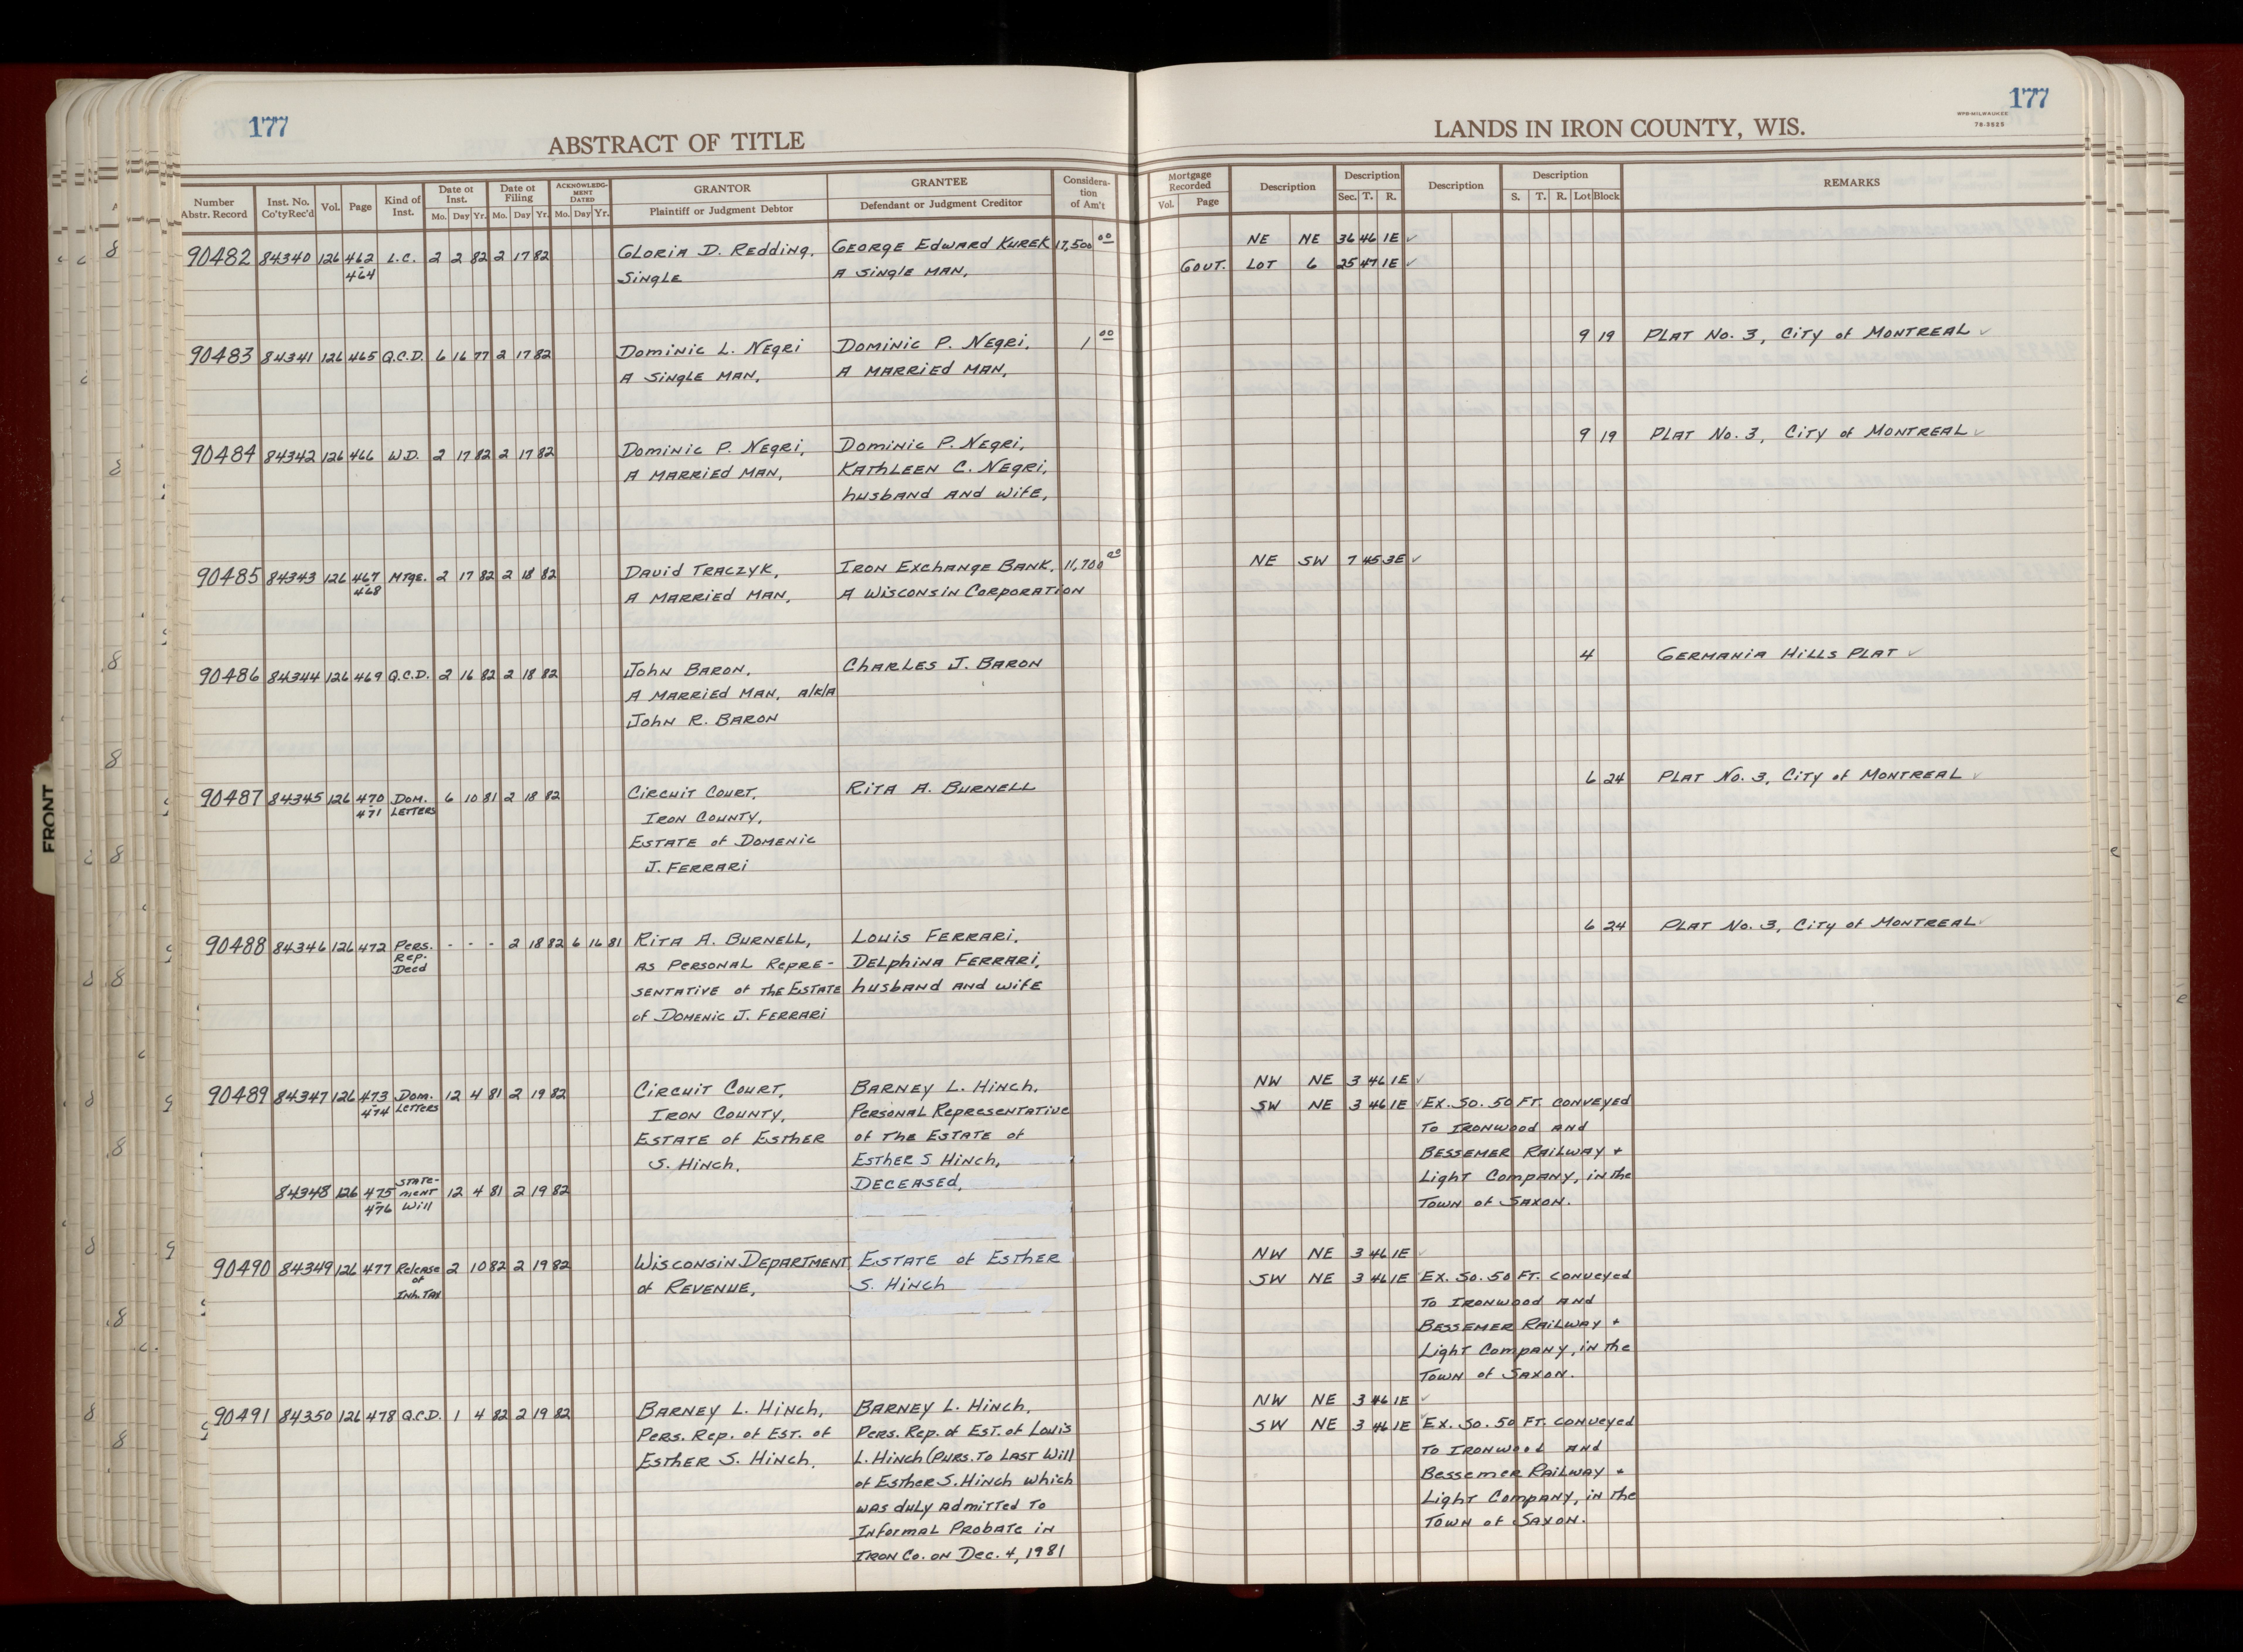 177
177
ABSTRACT OF TITLE
LANDS IN IRON COUNTY, WIS.
WPB-MILWAUKEE
78-3525
FRONT
Number Abstr. Record | Inst. No. Co'ty Rec'd | Vol. | Page | Kind of Inst. | Date of Inst. Mo. Day Yr. | Date of Filing Mo. Day Yr. | ACKNOWLEDGMENT DATED Mo. Day Yr. | GRANTOR Plaintiff or Judgment Debtor | GRANTEE Defendant or Judgment Creditor | Consideration of Am't | Mortgage Recorded Vol. Page | Description | Description Sec. T. R. | Description | Description S. T. R. Lot Block | REMARKS
90482 84340 126 462 L.C. 2 2 82 2 17 82 GLORIA D. REDDING, GEORGE EDWARD KUREK 17,500 00 NE NE 36 46 1E ✓
- 464 SINGLE A SINGLE MAN, GOVT. LOT 6 25 47 1E ✓
90483 84341 126 465 Q.C.D. 6 16 77 2 17 82 DOMINIC L. NEGRI DOMINIC P. NEGRI, 1 00 9 19 PLAT NO. 3, CITY of MONTREAL ✓
A SINGLE MAN, A MARRIED MAN,
90484 84342 126 466 W.D. 2 17 82 2 17 82 DOMINIC P. NEGRI, DOMINIC P. NEGRI, 9 19 PLAT NO. 3, CITY of MONTREAL ✓
A MARRIED MAN, KATHLEEN C. NEGRI,
husband AND WIFE,
90485 84343 126 467 MTGE. 2 17 82 2 18 82 DAVID TRACZYK, IRON EXCHANGE BANK, 11,700 00 NE SW 7 45 3E ✓
- 468 A MARRIED MAN, A WISCONSIN CORPORATION
90486 84344 126 469 Q.C.D. 2 16 82 2 18 82 JOHN BARON, CHARLES J. BARON 4 GERMANIA HILLS PLAT ✓
A MARRIED MAN, A/K/A
JOHN R. BARON
90487 84345 126 470 DOM. 6 10 81 2 18 82 CIRCUIT COURT, RITA A. BURNELL 6 24 PLAT NO. 3, CITY of MONTREAL ✓
- 471 LETTERS IRON COUNTY,
ESTATE of DOMENIC
J. FERRARI
90488 84346 126 472 PERS. - - - 2 18 82 6 16 81 RITA A. BURNELL, LOUIS FERRARI, 6 24 PLAT NO. 3, CITY of MONTREAL ✓
REP. AS PERSONAL REPRE- DELPHINA FERRARI,
DEED SENTATIVE of THE ESTATE husband AND WIFE
of DOMENIC J. FERRARI
90489 84347 126 473 DOM. 12 4 81 2 19 82 CIRCUIT COURT, BARNEY L. HINCH, NW NE 3 46 1E ✓
- 474 LETTERS IRON COUNTY, PERSONAL REPRESENTATIVE SW NE 3 46 1E ✓ EX. SO. 50 FT. CONVEYED
ESTATE of ESTHER of THE ESTATE of TO IRONWOOD AND
S. HINCH, ESTHER S HINCH, BESSEMER RAILWAY +
84348 126 475 STATE- 12 4 81 2 19 82 DECEASED, LIGHT COMPANY, IN THE
- 476 MENT WILL TOWN of SAXON.
90490 84349 126 477 RELEASE 2 10 82 2 19 82 WISCONSIN DEPARTMENT ESTATE of ESTHER NW NE 3 46 1E ✓
of INH. TAX of REVENUE, S. HINCH SW NE 3 46 1E EX. SO. 50 FT. CONVEYED
TO IRONWOOD AND
BESSEMER RAILWAY +
LIGHT COMPANY, IN THE
TOWN of SAXON.
90491 84350 126 478 Q.C.D. 1 4 82 2 19 82 BARNEY L. HINCH, BARNEY L. HINCH, NW NE 3 46 1E ✓
PERS. REP. of EST. of PERS. REP. of EST. of LOUIS SW NE 3 46 1E ✓ EX. SO. 50 FT. CONVEYED
ESTHER S. HINCH, L. HINCH (PURS. TO LAST WILL TO IRONWOOD AND
of ESTHER S. HINCH WHICH BESSEMER RAILWAY +
WAS DULY ADMITTED TO LIGHT COMPANY, IN THE
INFORMAL PROBATE IN TOWN of SAXON.
IRON CO. ON DEC. 4, 1981